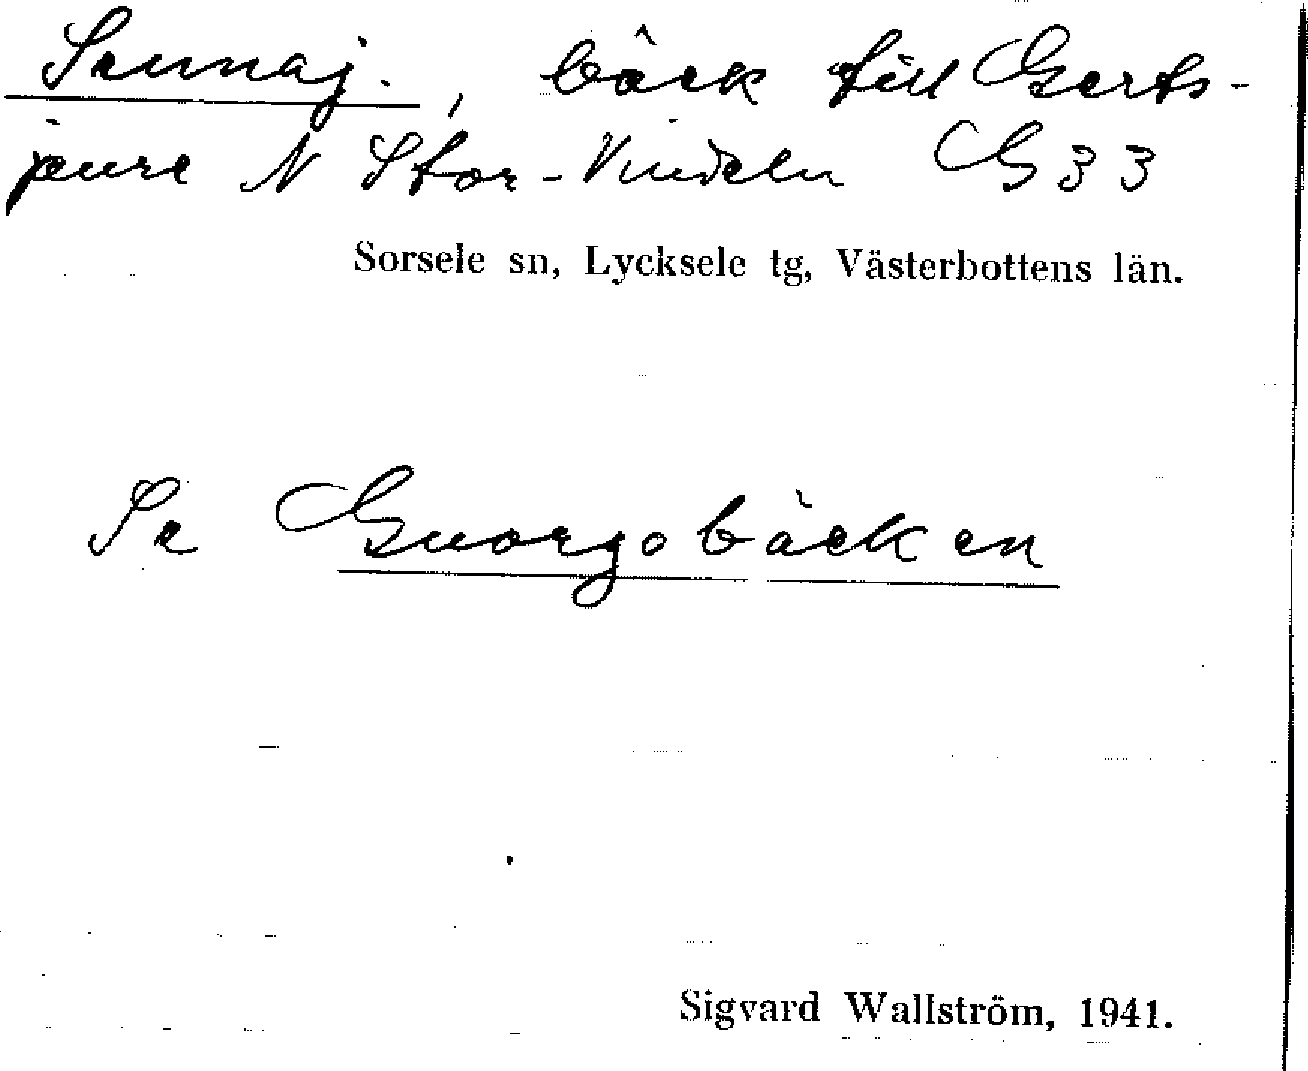 bäck till Gerts-
jaure N Stor-Vindeln G 33
Sorsele sn, Lycksele tg, Västerbottens län.
Se Guorgobäcken
Sigvard Wallström, 1941.